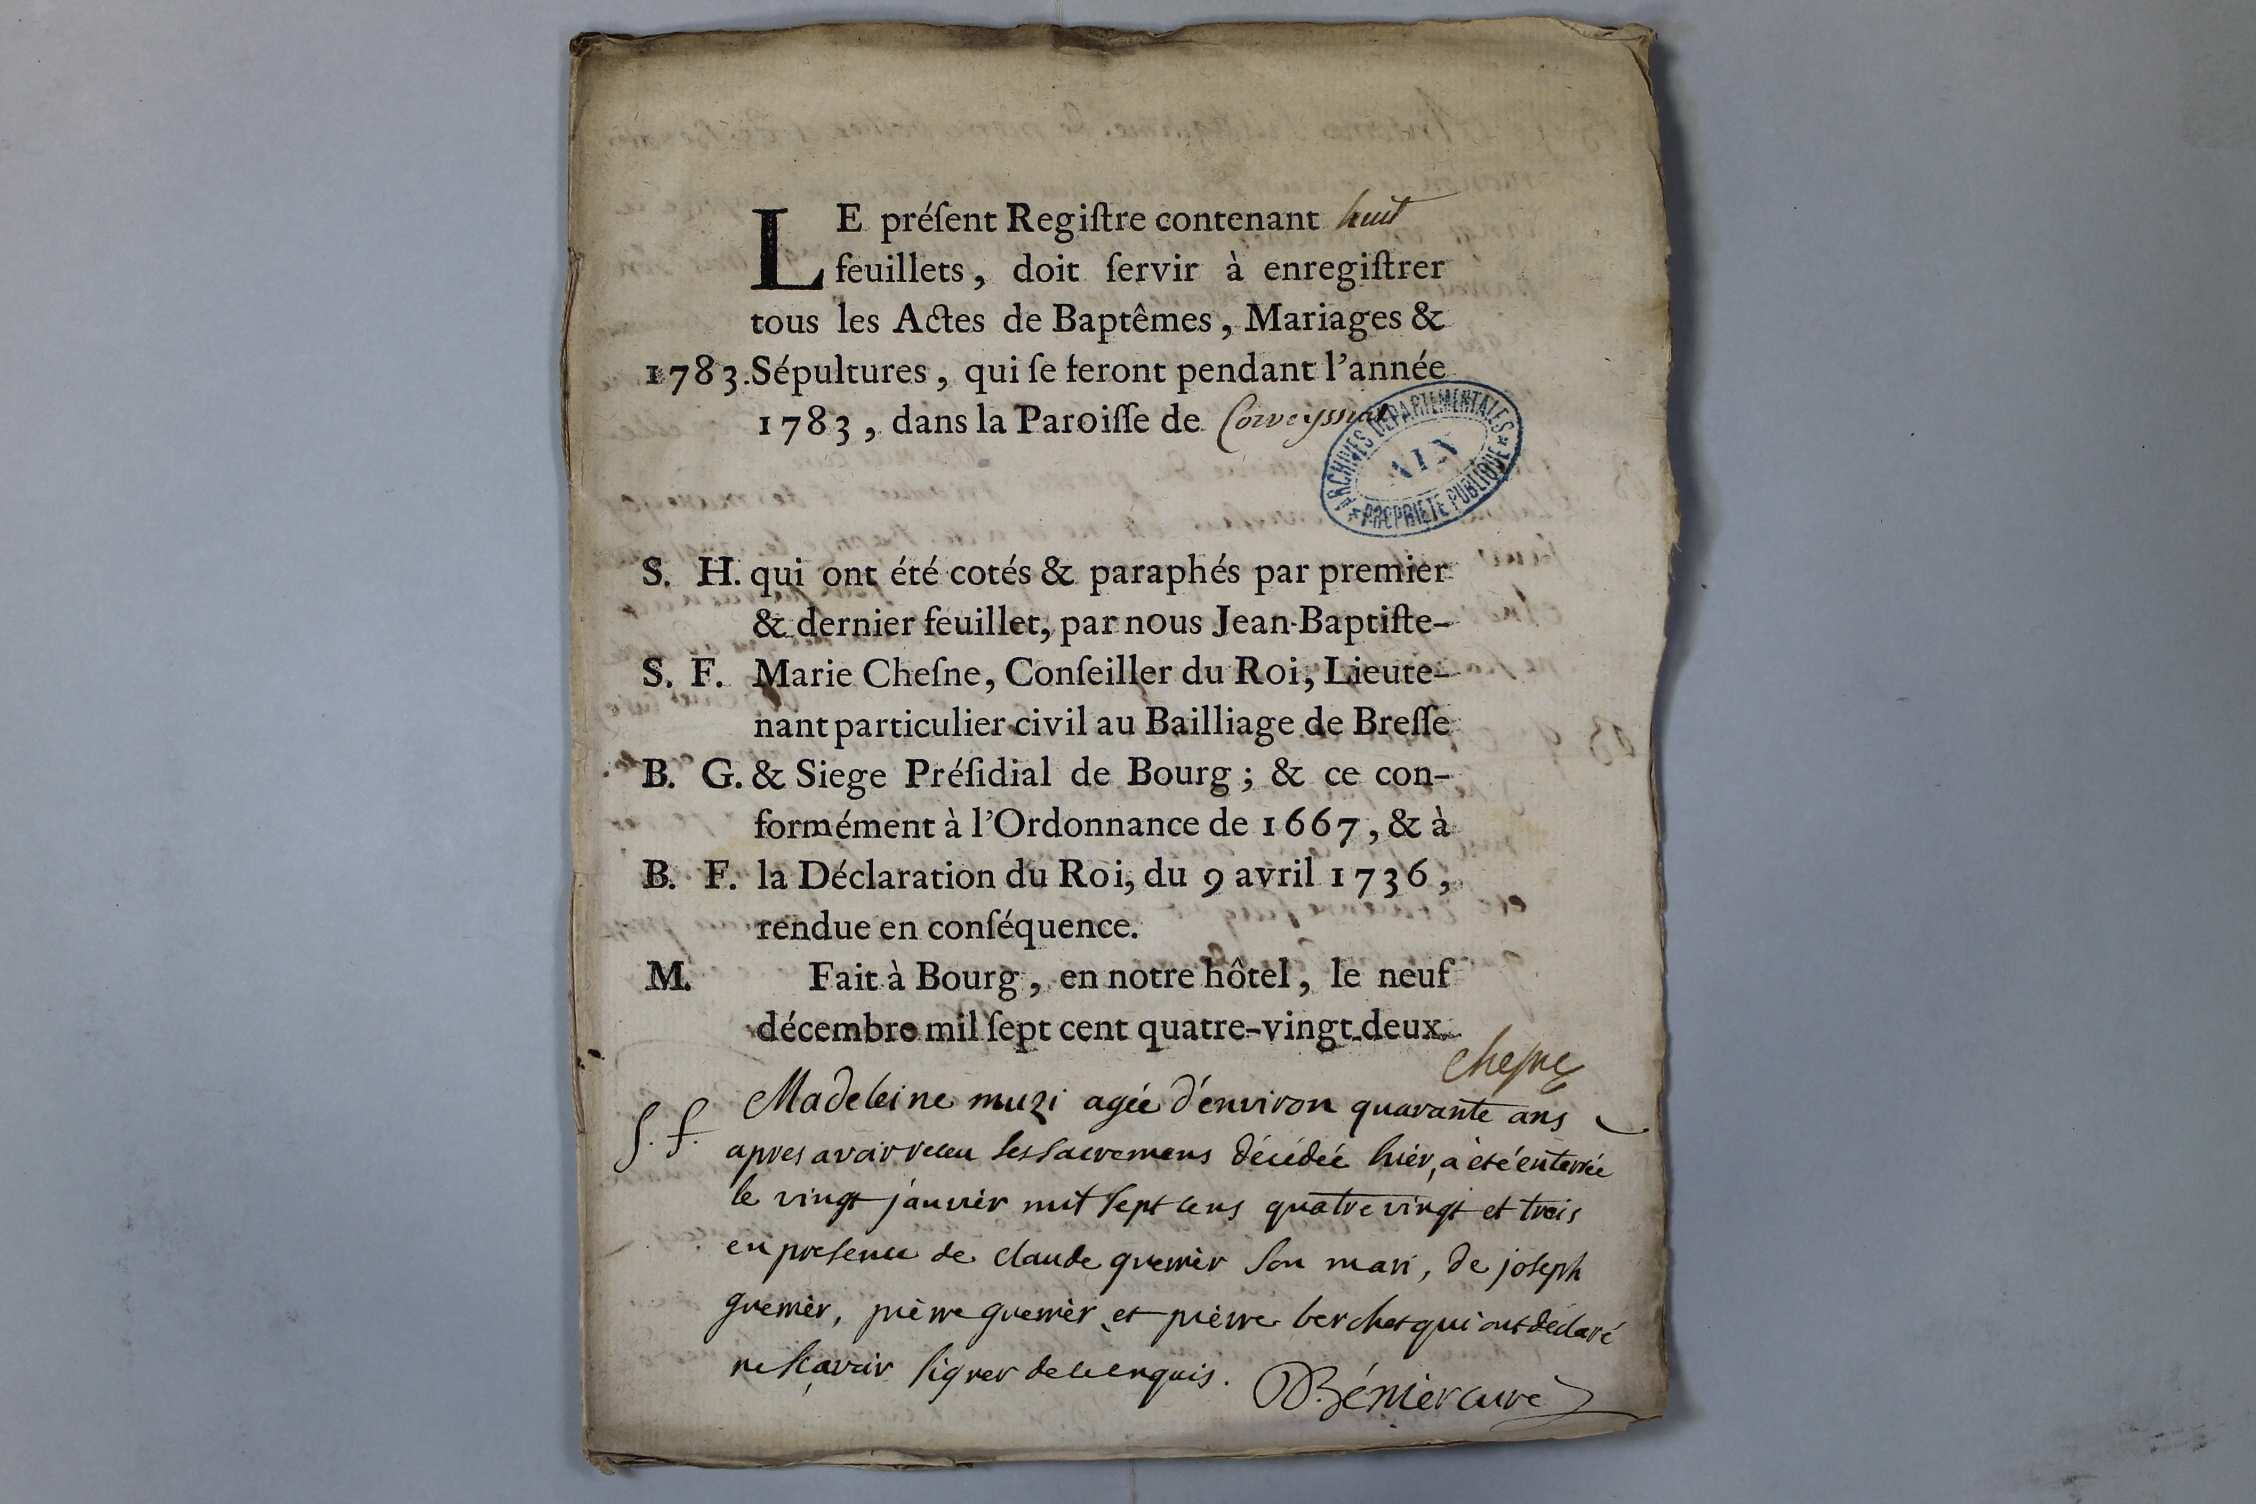 LE préſent Regiſtre contenant huit
feuillets, doit ſervir à enregiſtrer
tous les Actes de Baptêmes, Mariages &
1783. Sépultures, qui ſe feront pendant l'année
1783, dans la Paroiſſe de Corveyssiat
ARCHIVES DÉPARTEMENTALES
AIN
PROPRIÉTÉ PUBLIQUE
S. H. qui ont été cotés & paraphés par premier
& dernier feuillet, par nous Jean-Baptiſte-
S. F. Marie Cheſne, Conſeiller du Roi, Lieute-
nant particulier civil au Bailliage de Breſſe
B. G. & Siege Préſidial de Bourg; & ce con-
formément à l'Ordonnance de 1667, & à
B. F. la Déclaration du Roi, du 9 avril 1736,
rendue en conſéquence.
M. Fait à Bourg, en notre hôtel, le neuf
décembre mil ſept cent quatre-vingt-deux.
Chesne
Madeleine muzi agée d'environ quarante ans
S. f. apres avoir receu les sacremens décédée hiér, a été enterrée
le vingt janvier mil sept cens quatre vingt et trois
en presence de claude guerrier son mari, de joseph
guerrier, pièrre guerrier et pièrre berchet qui ont déclaré
ne scavoir signer de ce enquis. Bénier curé